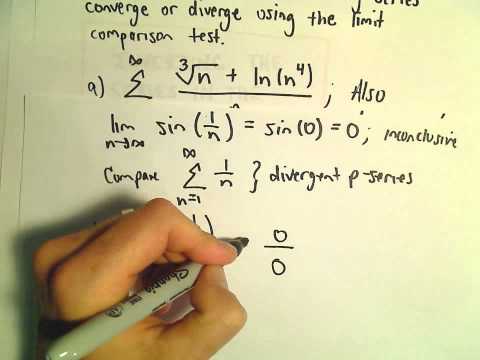 series
converge or diverge using the limit
comparison test.
a) ∞ Σ (∛n + ln(n⁴)) / n ; Also
lim n→∞ sin(1/n) = sin(0) = 0 ; inconclusive
Compare ∞ Σ n=1 1/n } divergent p-series
0/0